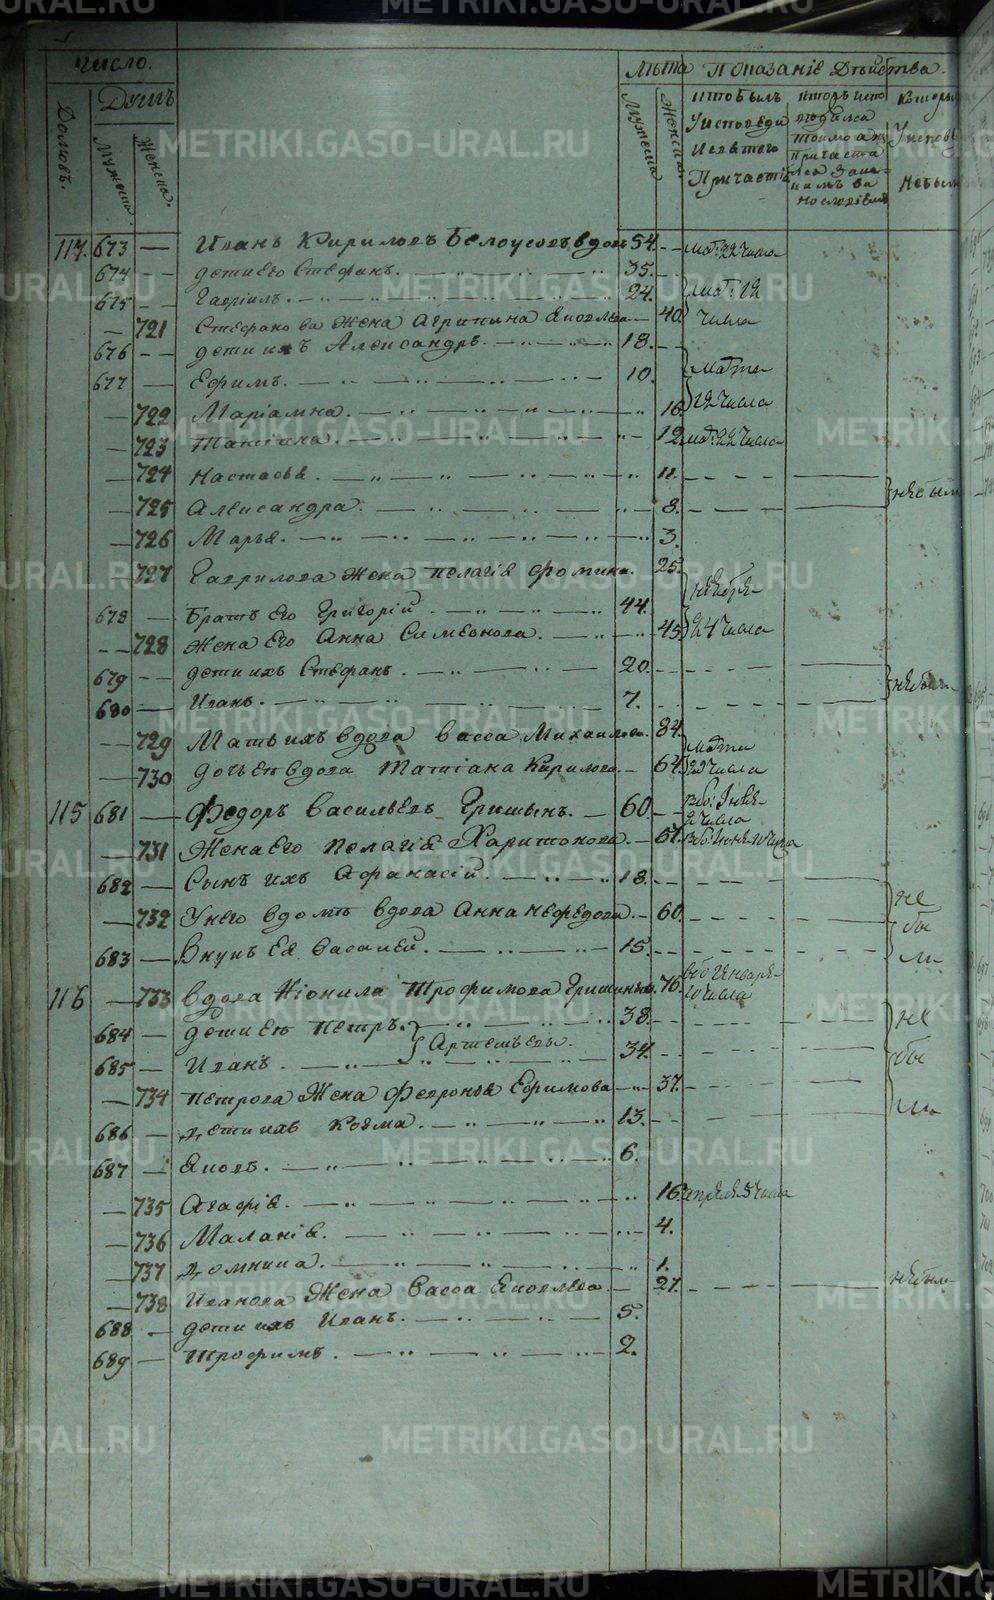 Число.
Лѣта Показаніе Дѣйства.
Домовъ.
Душъ
Мужеска.
Женска.
Мужеска
Женска.
кто былъ
У исповѣди
И святого
Причастія
Которы
У исповѣ
не были
114. 673 — Иванъ Кириловъ Белоусовъ вдовъ 54. — мар: 22 числа
674 — дети его Стефанъ. 35.
675 — Гавріилъ. 24. мар: 12 числа
— 721 Стефанова жена Агрипина Яковлева 40.
676 — дети ихъ Александръ. 18.
677 — Ефимъ. 10. марта 12 числа
— 722 Маріамна. 16.
— 723 Татіана. 12. мар: 22 числа
— 724 Настасья. 11.
— 725 Александра. 8. не были
— 726 Марья. 3.
— 727 Гаврилова жена Пелагія Фомина. 25.
678 — Братъ его Григорій. 44.
— 728 Жена Его Анна Симеонова. 45. 24 числа
679 — дети ихъ Стефанъ. 20.
680 — Иванъ. 7. не были
— 729 Мать ихъ вдова Васса Михаилова. 84. марта
— 730 дочь ея вдова Татіана Кирилова. 64. 22 числа
115 681 — Федоръ Васильевъ Гришинъ. 60.
2 числа
— 731 Жена Его Пелагія Харитонова. 61.
682 — Сынъ ихъ Афанасій. 18.
— 732 У него в домѣ вдова Анна Нефедова. 60. не бы
683 — Внукъ Ея Василей. 15. ли
116 — 733 вдова Ніонила Трофимова Гришиныхъ. 76. генваря 10 числа
684 — дети ею Петръ. 38. не
Артемьевы.
685 — Иванъ. 34. бы
— 734 Петрова Жена Феврония Ефимова 37. ли
686 — дети ихъ Козма. 13.
687 — Яковъ. 6.
— 735 Агафія. 16. апреля 5 числа
— 736 Маланія. 4.
— 737 Домника. 1.
— 738 Иванова Жена Васса Яковлева. 27. не были
688 — дети ихъ Иванъ. 5.
689 — Трофимъ. 2.
METRIKI.GASO-URAL.RU